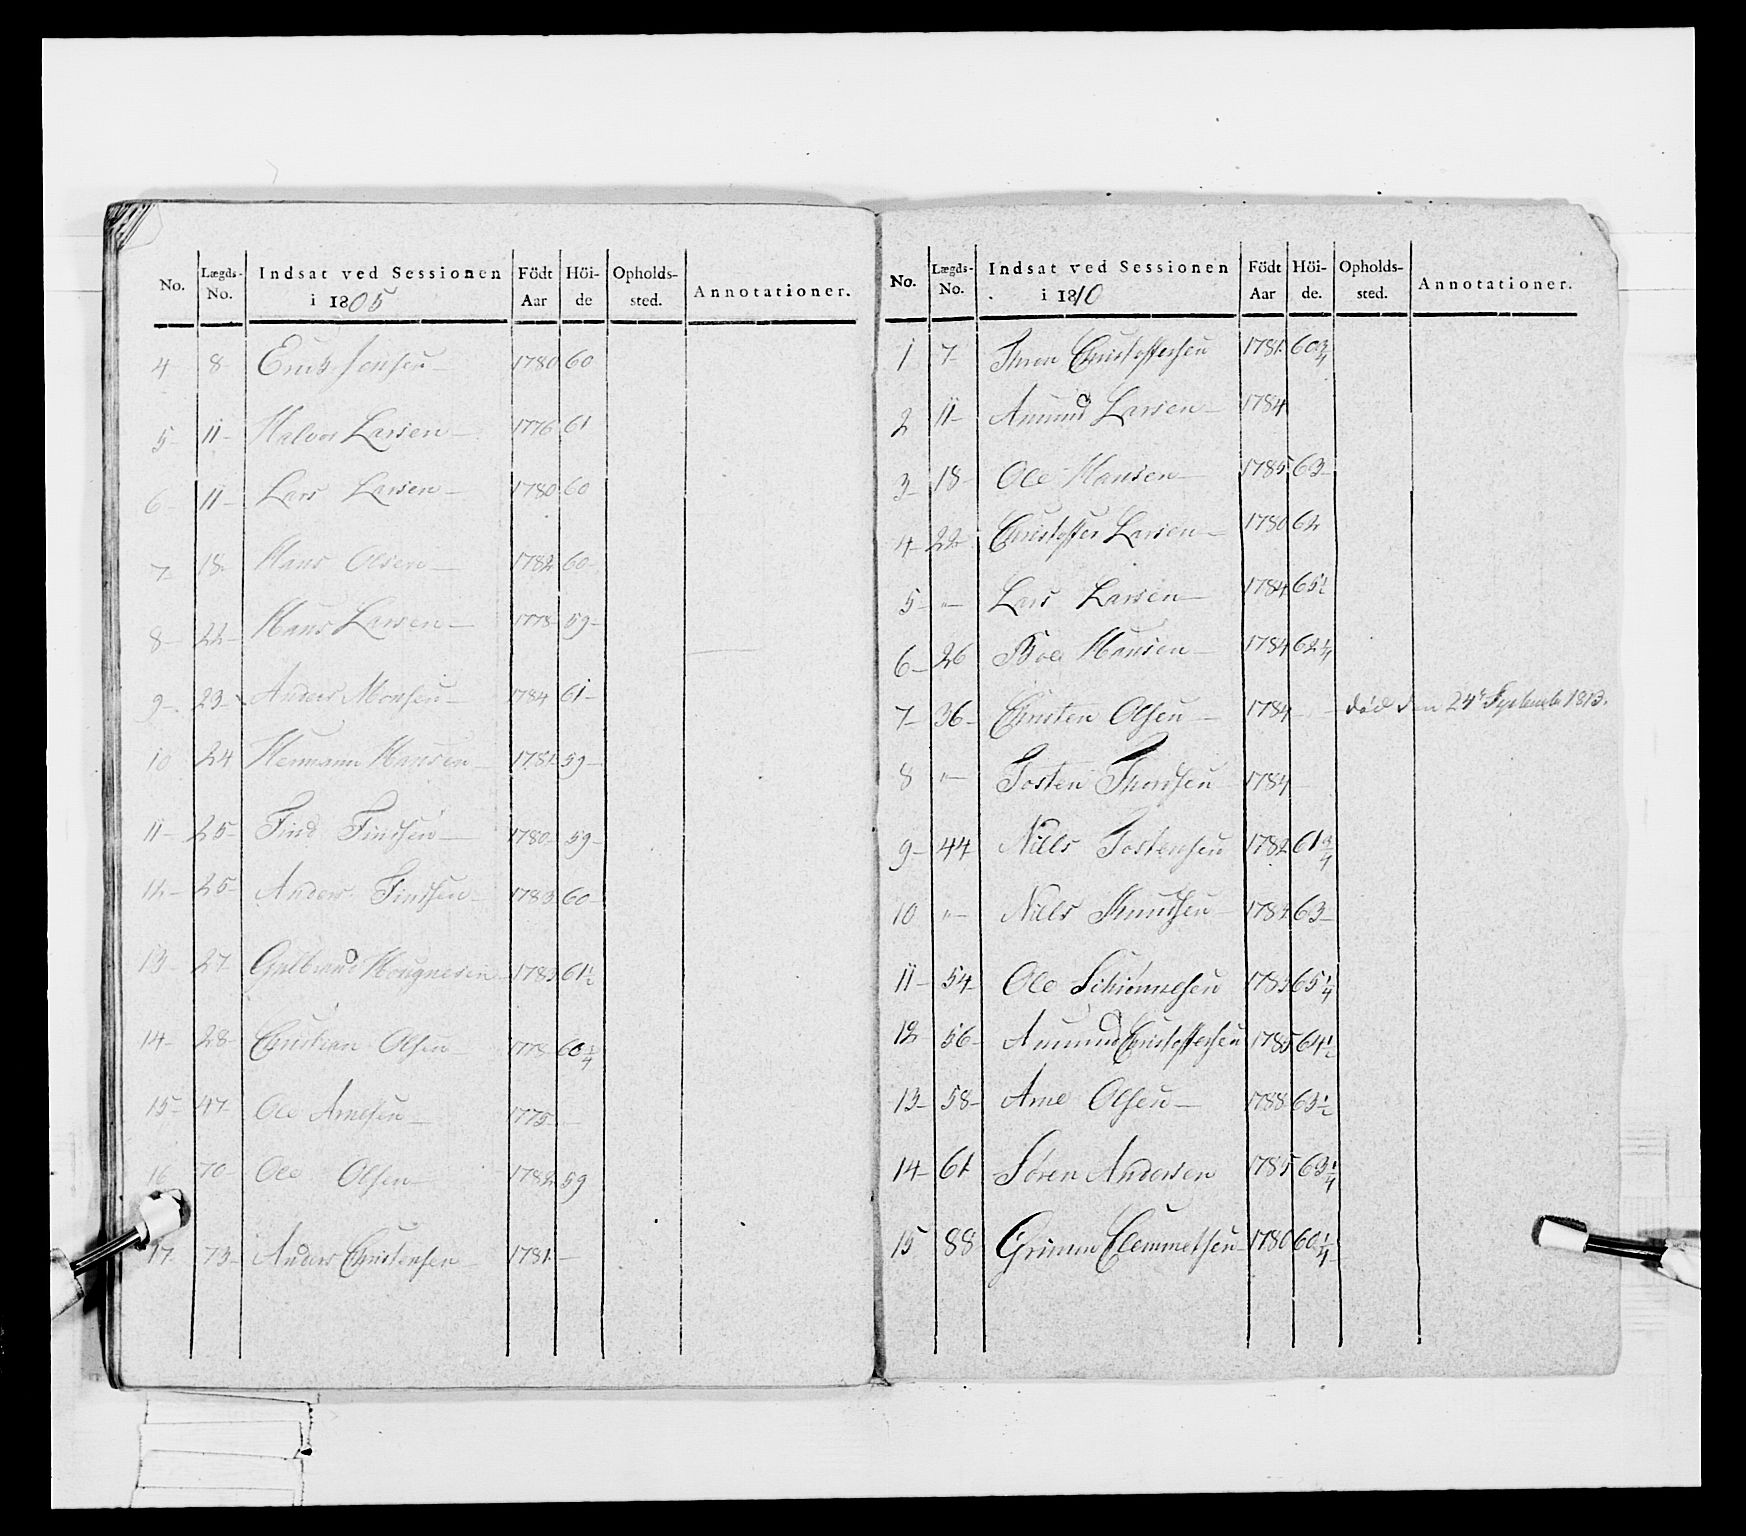 No. Lægds-No. Indsat ved Sessionen i 1805 Födt Aar Höide Opholdssted. Annotationer.
4 8 Erich Jensen 1780 60
5 11 Halvor Larsen 1776 61
6 11 Lars Larsen 1780 60
7 18 Hans Olsen 1782 60
8 22 Hans Larsen 1778 59
9 23 Anders Monsen 1784 61
10 24 Hermann Hansen 1781 59
11 25 Find Findsen 1780 59
12 25 Anders Findsen 1783 60
13 27 Gulbrand 1783 61½
14 28 Christian Olsen 1778 60¼
15 47 Ole Arnesen 1775
16 70 Ole Olsen 1782 59
17 73 Anders Christensen 1781
No. Lægds-No. Indsat ved Sessionen i 1810 Födt Aar Höide. Opholdssted. Annotationer.
1 7 Christoffersen 1781 60¾
2 11 Amund Larsen 1784
3 18 Ole Hansen 1785 63
4 22 Christoffer Larsen 1780 62
5 " Lars Larsen 1784 65½
6 26 Hansen 1784 62¼
7 36 Christen Olsen 1784 død den 24de September 1813.
8 " Tosten Thordsen 1784
9 44 Niels Tostensen 1782 61¾
10 " Niels Knudsen 1782 63
11 54 Ole 1783 65¼
12 56 Amund Christoffersen 1785 64½
13 58 Arne Olsen 1788 63½
14 61 Søren Andersen 1785 63¼
15 88 Grimm Clemmetsen 1780 60¼